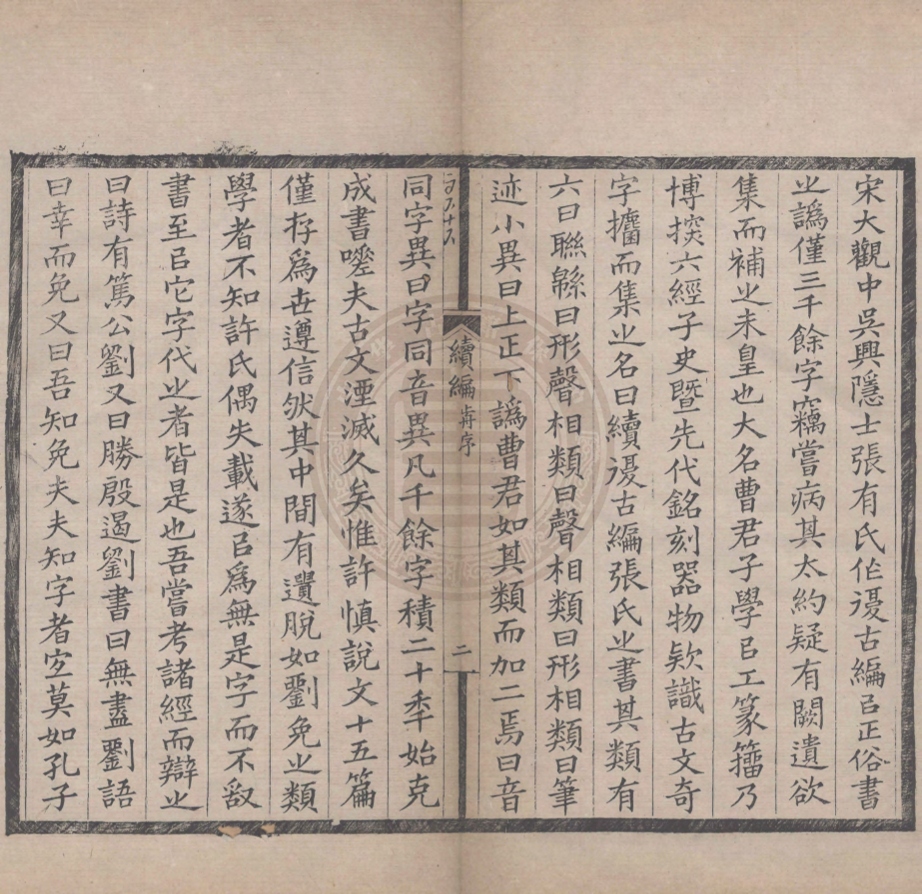 宋大觀中吳興隱士張有氏作㴜古編㠯正俗書
㞢譌僅三千餘字竊嘗病其太約疑有闕遺欲
集而補㞢未皇也大名曹君子學㠯工篆籒乃
博㨷六經子史暨先代銘刻器物欵識古文奇
字攟而集㞢名曰續㴜古編張氏㞢書其類有
六曰聯緜曰形聲相類曰聲相類曰形相類曰筆
迹小異曰上正下譌曹君如其類而加二焉曰音
同字異曰字同音異凡千餘字積二十秊始克
成書嗟夫古文湮滅久矣惟許慎說文十五篇
僅存爲世遵信然其中間有遺脫如劉免㞢類
學者不知許氏偶失載遂㠯爲無是字而不敢
書至㠯它字代㞢者皆是也吾嘗考諸經而辯㞢
曰詩有篤公劉又曰勝殷遏劉書曰無盡劉語
曰幸而免又曰吾知免夫夫知字者宜莫如孔子
續編 歬序
二